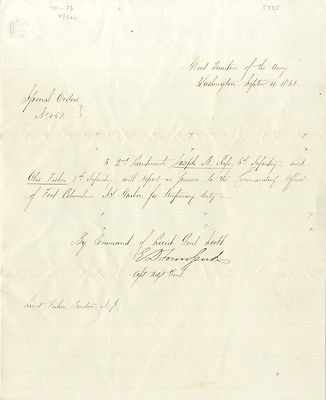 5785
Head Quarters of the Army,
Washington Septr 11 1861.
Special Orders
No
3. 2nd Lieutenants Joseph B. 6th Infantry, and
Otis Fisher 8th Infantry, will report in person to the Commanding Officer
of Fort Columbus N.Y. Harbor, for temporary duty.
" " "
By Command of Lieut Genl Scott
E D Townsend
Asst Adjt Genl
Lieut Fisher, Trenton, N. J.